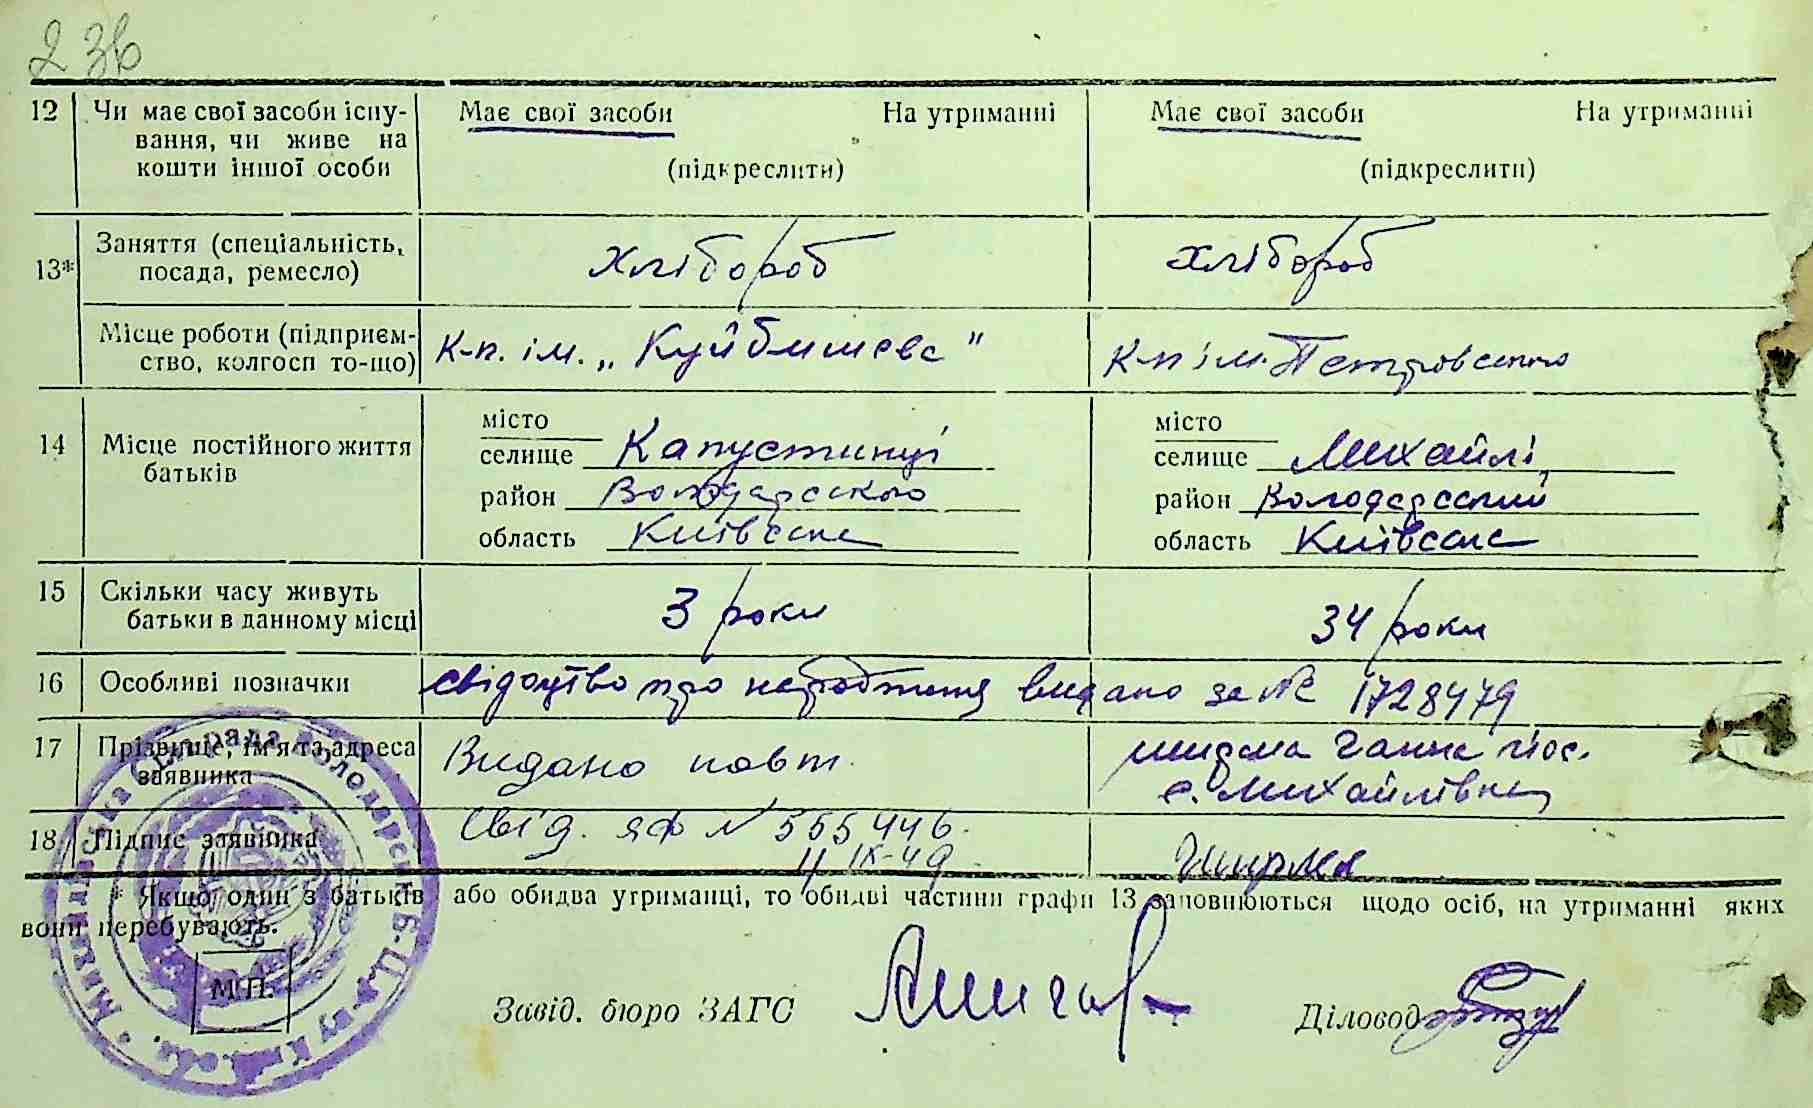 236
12 Чи має свої засоби існу- Має свої засоби На утриманні Має свої засоби На утриманні
вання, чи живе на
кошти іншої особи (підкреслити) (підкреслити)
13* Заняття (спеціальність, посада, ремесло) хлібороб хлібороб
Місце роботи (підприєм-
ство, колгосп то-що) К-п. ім. „Куйбишева" К-п ім. Петровського
14 Місце постійного життя батьків
місто місто
селище Капустинці селище Михайлі
район Володарського район Володарський
область Київська область Київська
15 Скільки часу живуть
батьки в данному місці 3 роки 34 роки
16 Особливі позначки свідоцтво про народження видано за № 1728479
17 Прізвище, ім'я та адреса
заявника Видано повт. Ганна
с. Михайлівка
18 Підпис заявника Свід. ЯФ № 555446.
11 IX-49
* Якщо один з батьків або обидва утриманці, то обидві частини графи 13 заповнюються щодо осіб, на утриманні яких
вони перебувають.
М.П.
Завід. бюро ЗАГС Діловод